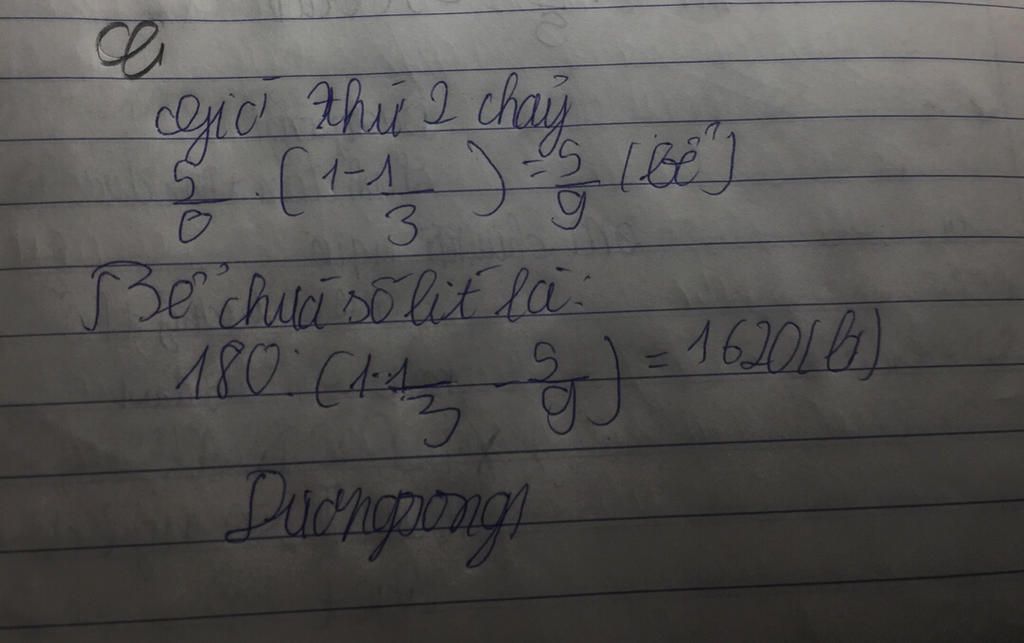 Giờ thứ 2 chảy
5/6 . (1 - 1/3) = 5/9 (Bể)
Bể chứa số lít là:
180 : (1 - 1/3 - 5/9) = 1620 (lít)